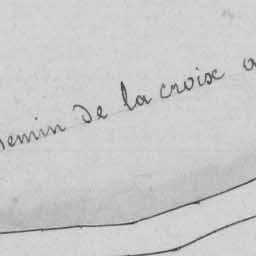 hemin de la croix a